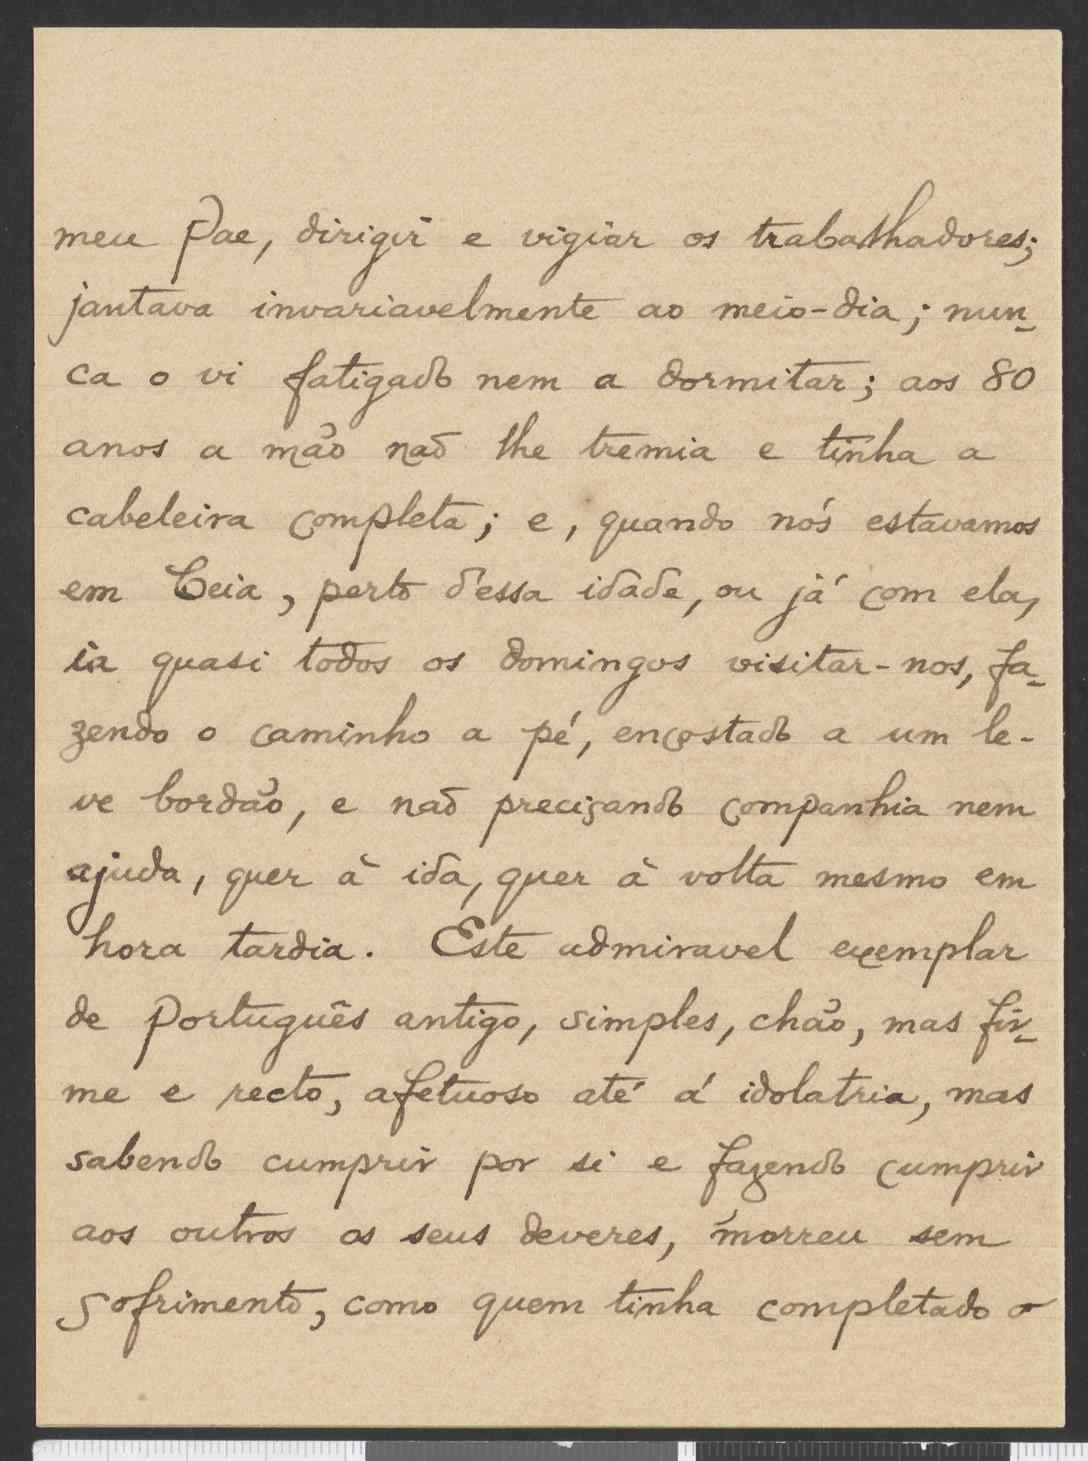 meu Pae, dirigir e vigiar os trabalhadores;
jantava invariavelmente ao meio-dia; nun-
ca o vi fatigado nem a dormitar; aos 80
anos a mão não lhe tremia e tinha a
cabeleira completa; e, quando nós estavamos
em Ceia, perto d'essa idade, ou já com ela,
ia quasi todos os domingos visitar-nos, fa-
zendo o caminho a pé, encostado a um le-
ve bordão, e não precisando companhia nem
ajuda, quer à ida, quer à volta mesmo em
hora tardia. Este admiravel exemplar
de Português antigo, simples, chão, mas fir-
me e recto, afetuoso até á idolatria, mas
sabendo cumprir por si e fazendo cumprir
aos outros os seus deveres, morreu sem
sofrimento, como quem tinha completado o